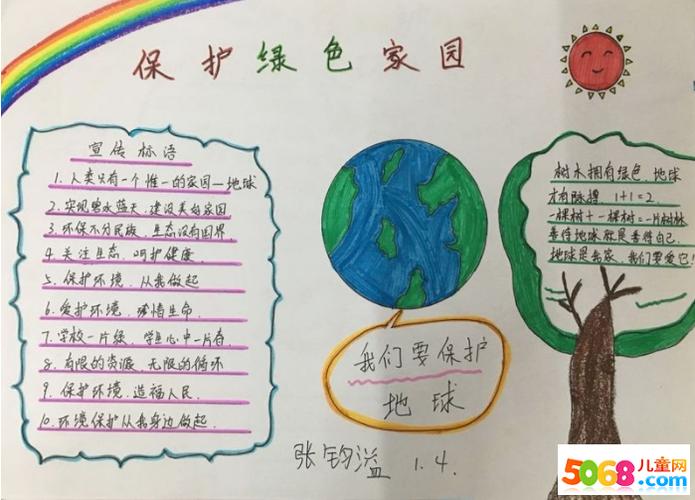 保护绿色家园
宣传标语
1. 人类只有一个惟一的家园—地球
2. 实现碧水蓝天,建设美好家园
3. 环保不分民族,生态没有国界.
4. 关注生态,呵护健康.
5. 保护环境,从我做起
6. 爱护环境,珍惜生命.
7. 学校一片绿,学生心中一片春.
8. 有限的资源,无限的循环
9. 保护环境.造福人民.
10. 环境保护从我身边做起.
我们要保护
地球
树木拥有绿色,地球
才有脉搏. 1+1=2.
一棵树+一棵树=一片树林
善待地球就是善待自己.
地球是我家,我们要爱它!
张钧溢 1.4.
5068儿童网
www.5068.com